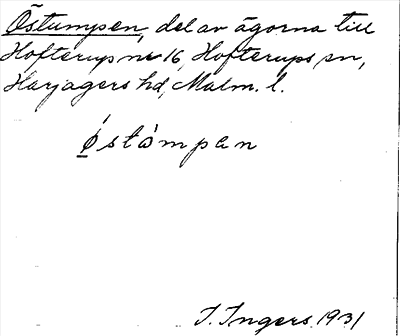 Östumpen, del av ägorna till
Hofterup nr 16, Hofterups sn,
Harjagers hd, Malm. l.
ǿstòmpan
I. Ingers 1931